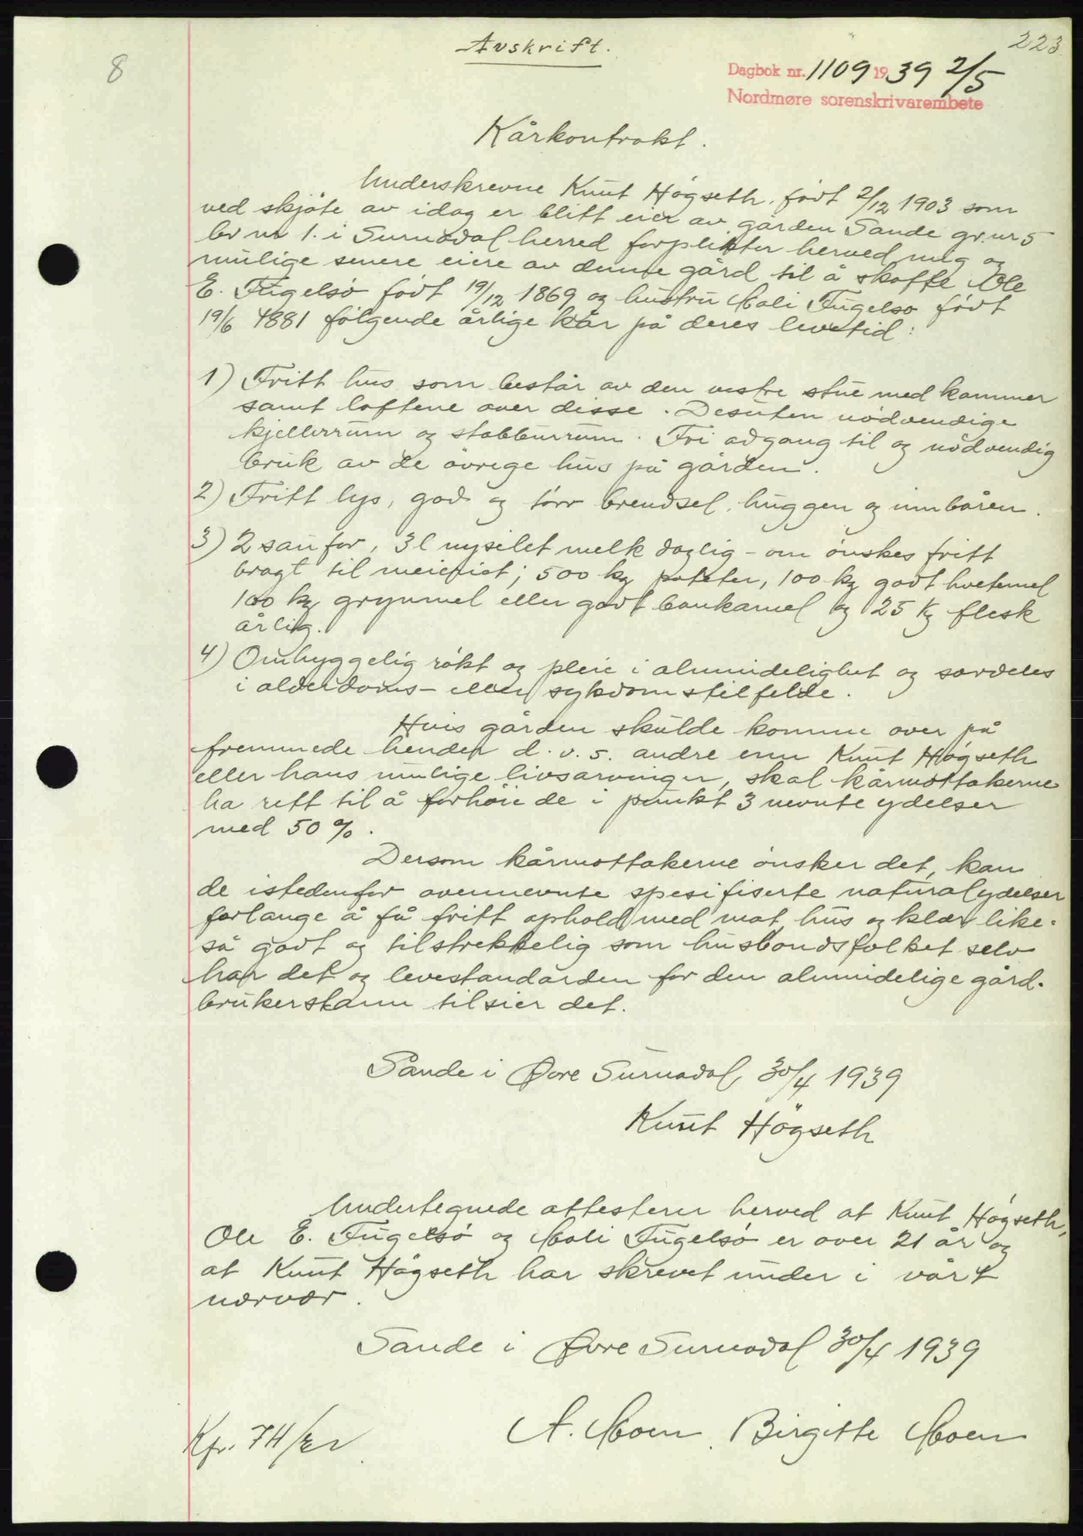 223
8
Avskrift.
Dagbok nr. 1109 1939 2/5
Nordmøre sorenskrivarembete
Kårkontrakt.
Underskrevne Knut Högseth, født 2/12 1903 som
ved skjøte av idag er blitt eier av gården Sande gr.nr 5
br nr 1. i Surnadal herred forplikter herved mig og
mulige senere eiere av denne gård til å skaffe Ole
E. Fugelsö födt 19/12 1869 og hustru Mali Fugelsö födt
19/6 1881 fölgende årlige kår på deres levetid:
1) Fritt hus som består av den vestre stue med kammer
samt loftene over disse. Desuten nödvendige
kjellerrum og stabburrum. Fri adgang til og nödvendig
bruk av de övrige hus på gården.
2) Fritt lys, god og törr brendsel, huggen og innbåren.
3) 2 sau for, 3 l nysilet melk daglig - om önskes fritt
bragt til meieriet; 500 kg poteter, 100 kg godt hvetemel
100 kg grynmel eller godt bankamel og 25 kg flesk
årlig.
4) Omhyggelig rökt og pleie i almindelighet og særdeles
i alderdoms- eller sykdomstilfelde.
Hvis gården skulde komme over på
fremmede hender d. v. s. andre enn Knut Högseth
eller hans mulige livsarvinger, skal kårmottakerne
ha rett til å forhöie de i punkt 3 nevnte ydelser
med 50 %.
Dersom kårmottakerne önsker det, kan
de istedenfor ovennevnte spesifiserte naturalydelser
forlange å få fritt ophold med mat, hus og klær like-
så godt og tilstrekkelig som husbondsfolket selv
har det og levestandarden for den almindelige gård-
brukerstann tilsier det.
Sande i Øvre Surnadal, 30/4 1939
Knut Högseth
Undertegnede attesterer herved at Knut Högseth,
Ole E. Fugelsö og Mali Fugelsö er over 21 år og
at Knut Högseth har skrevet under i vårt
nærvær.
Sande i Øvre Surnadal 30/4 1939
A. Moen. Birgitte Moen
Kfr. 74/